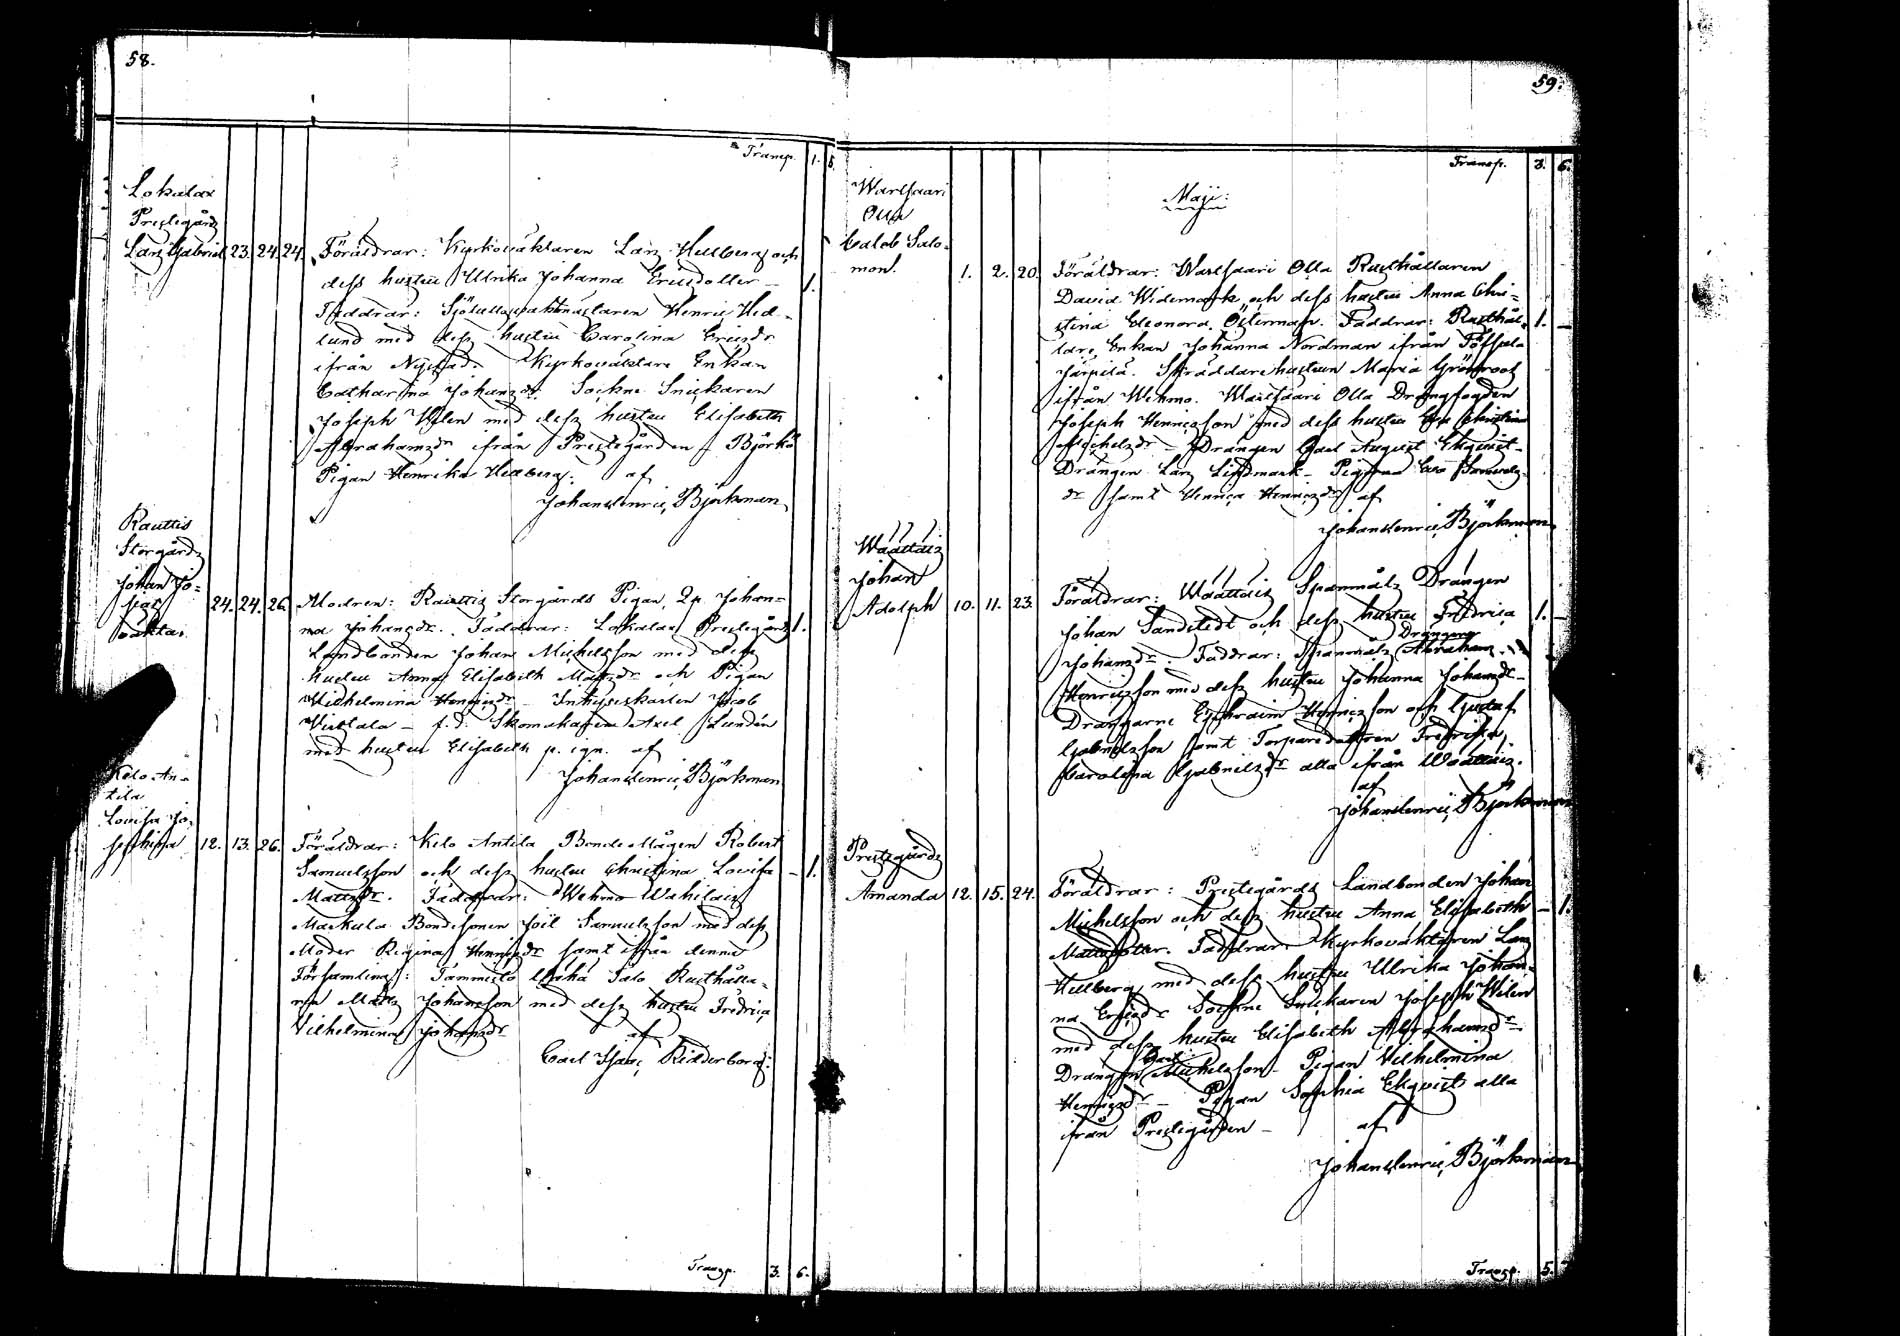 58.
Transp. 1. 5.
Lokalax
Prestegårds
Lars Gabriel 23. 24. 24. Föräldrar: Kyrkoväktaren Lars Hellberg och
dess hustru Ulrika Johanna Ericsdotter – 1.
Faddrar: Henric Hed-
lund med dess hustru Carolina Ericsdr
ifrån Nystad. Kyrkoväktare Enkan
Catharina Johansdr. Sockne Snickaren
Joseph Wilen med dess hustru Elisabeth
Abrahamsdr ifrån Prestegården
Pigan Henrika Hellberg. af
Johan Henric Björkman
Rauttis
Storgårds
Johan Jo-
24. 24. 26. Modren: Rauttis Storgårds Pigan, Qp. Johan-
oäkta. na Johansdr. Faddrar: Lokalax Prestegårds 1.
Landbonden Johan Michelsson med dess
hustru Anna Elisabeth Mattsdr och Pigan
Wilhelmina Henricsdr – Inhyseskarlen Jacob
– f.d. Skomakaren Axel Lundén
med hustru Elisabeth p. ign. af
Johan Henric Björkman
Kelo An-
tila
Lovisa Jo-
sephina 12. 13. 26. Föräldrar: Kelo Antila Bonde Mågen Robert
Samuelsson och dess hustru Christina Lovisa – 1.
Mattsdr. Faddrar: Wehmo Wahilais
Markula Bondesonen Joel Samuelsson med dess
Moder Regina Henricsdr samt ifrån denne
Församling: Tammisto Salo Rusthålla-
ren Matts Johansson med dess hustru Fredrica
Vilhelmina Johansdr af
Carl Isaac Ridderborg:
Transp. 3. 6.
59.
Transp. 3. 6.
Maji:
Warlsaari
Olla
Caleb Salo-
mon. 1. 2. 20. Föräldrar: Warlsaari Olla Rusthållaren
David Widemark och dess hustru Anna Chri-
stina Eleonora Österman. Faddrar: Rusthål- 1. –
lare Enkan Johanna Nordman ifrån
Järpilä. Skräddare hustrun Maria Grönroos
ifrån Wehmo. Warlsaari Olla Drängfogden
Joseph Henricsson med dess hustru Christina
Michelsdr – Drängen Carl August Ekqvist –
Drängen Lars Lindmark – Pigorna Eva Samuels-
dr samt Henrica Henricsdr af
Johan Henric Björkman
Waattais
Johan
Adolph 10. 11. 23. Föräldrar: Waattais Spannmåls Drängen
Johan Sandstedt och dess hustru Fredrica 1. –
Johansdr. Faddrar: Spannmåls Drängen Abraham
Henricsson med dess hustru Johanna Johansdr –
Drängarne Ephraim Henricsson och Gustaf
Gabrielsson samt Torparedottren Fredrika
Carolina Gabrielsdr alla ifrån Waattais.
af
Johan Henric Björkman
Prestegårds
Amanda 12. 15. 24. Föräldrar: Prestegårds Landbonden Johan
Michelsson och dess hustru Anna Elisabeth – 1.
Mattsdotter. Faddrar: Kyrkoväktaren Lars
Hellberg med dess hustru Ulrika Johan-
na Ericsdr Sockne Snickaren Joseph Wilen
med dess hustru Elisabeth Abrahamsdr –
Drängen Carl Michelsson – Pigan Vilhelmina
Henricsdr – Pigan Sophia Ekqvist alla
ifrån Prestegården – af
Johan Henric Björkman
Transp. 5.